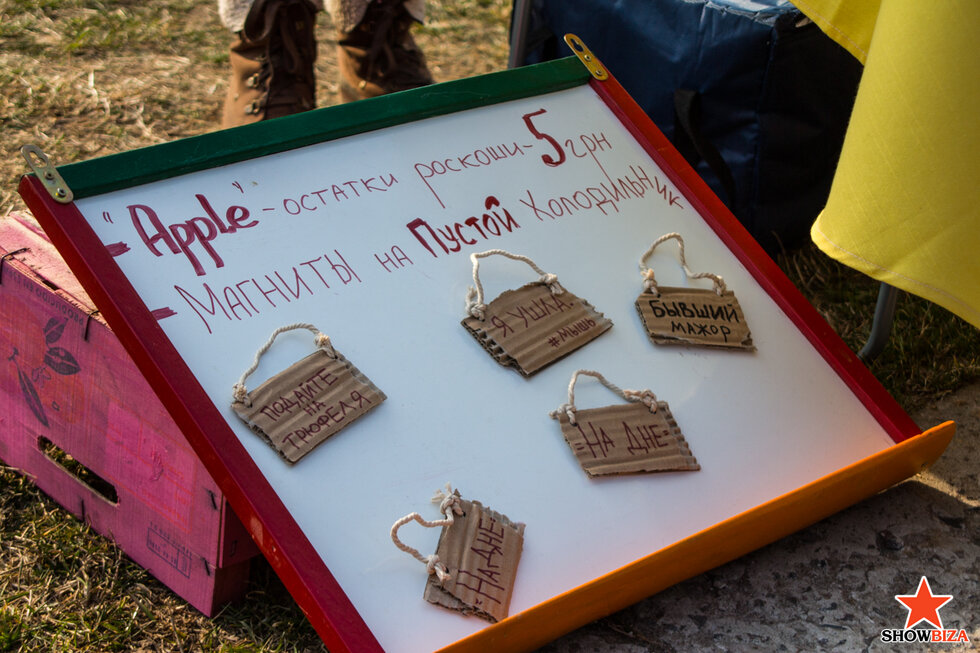 - "Apple" - остатки роскоши - 5 грн
- Магниты на Пустой Холодильник
Я УШЛА
#МЫШЬ
БЫВШИЙ
МАЖОР
ПОДАЙТЕ
НА
ТРЮФЕЛЯ
=НА ДНЕ=
=НА ДНЕ=
SHOWBIZA